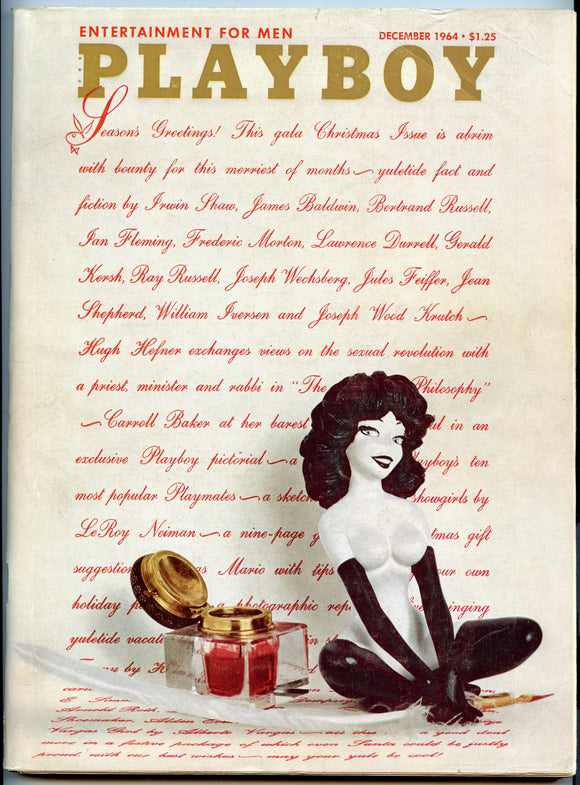 ENTERTAINMENT FOR MEN
DECEMBER 1964 • $1.25
PLAYBOY
Season's Greetings! This gala Christmas Issue is abrim
with bounty for this merriest of months — yuletide fact and
fiction by Irwin Shaw, James Baldwin, Bertrand Russell,
Ian Fleming, Frederic Morton, Lawrence Durrell, Gerald
Kersh, Ray Russell, Joseph Wechsberg, Jules Feiffer, Jean
Shepherd, William Iversen and Joseph Wood Krutch —
Hugh Hefner exchanges views on the sexual revolution with
a priest, minister and rabbi in "The Philosophy"
— Carroll Baker at her barest in an
exclusive Playboy pictorial — a ten
most popular Playmates — a showgirls by
LeRoy Neiman — a nine-page gift
suggestion Mario with tips your own
holiday a photographic
yuletide
by
&
Vargas Girl by Alberto Vargas — a good deal
more in a festive package of which even Santa could be justly
proud. with our best wishes — may your yule be cool!